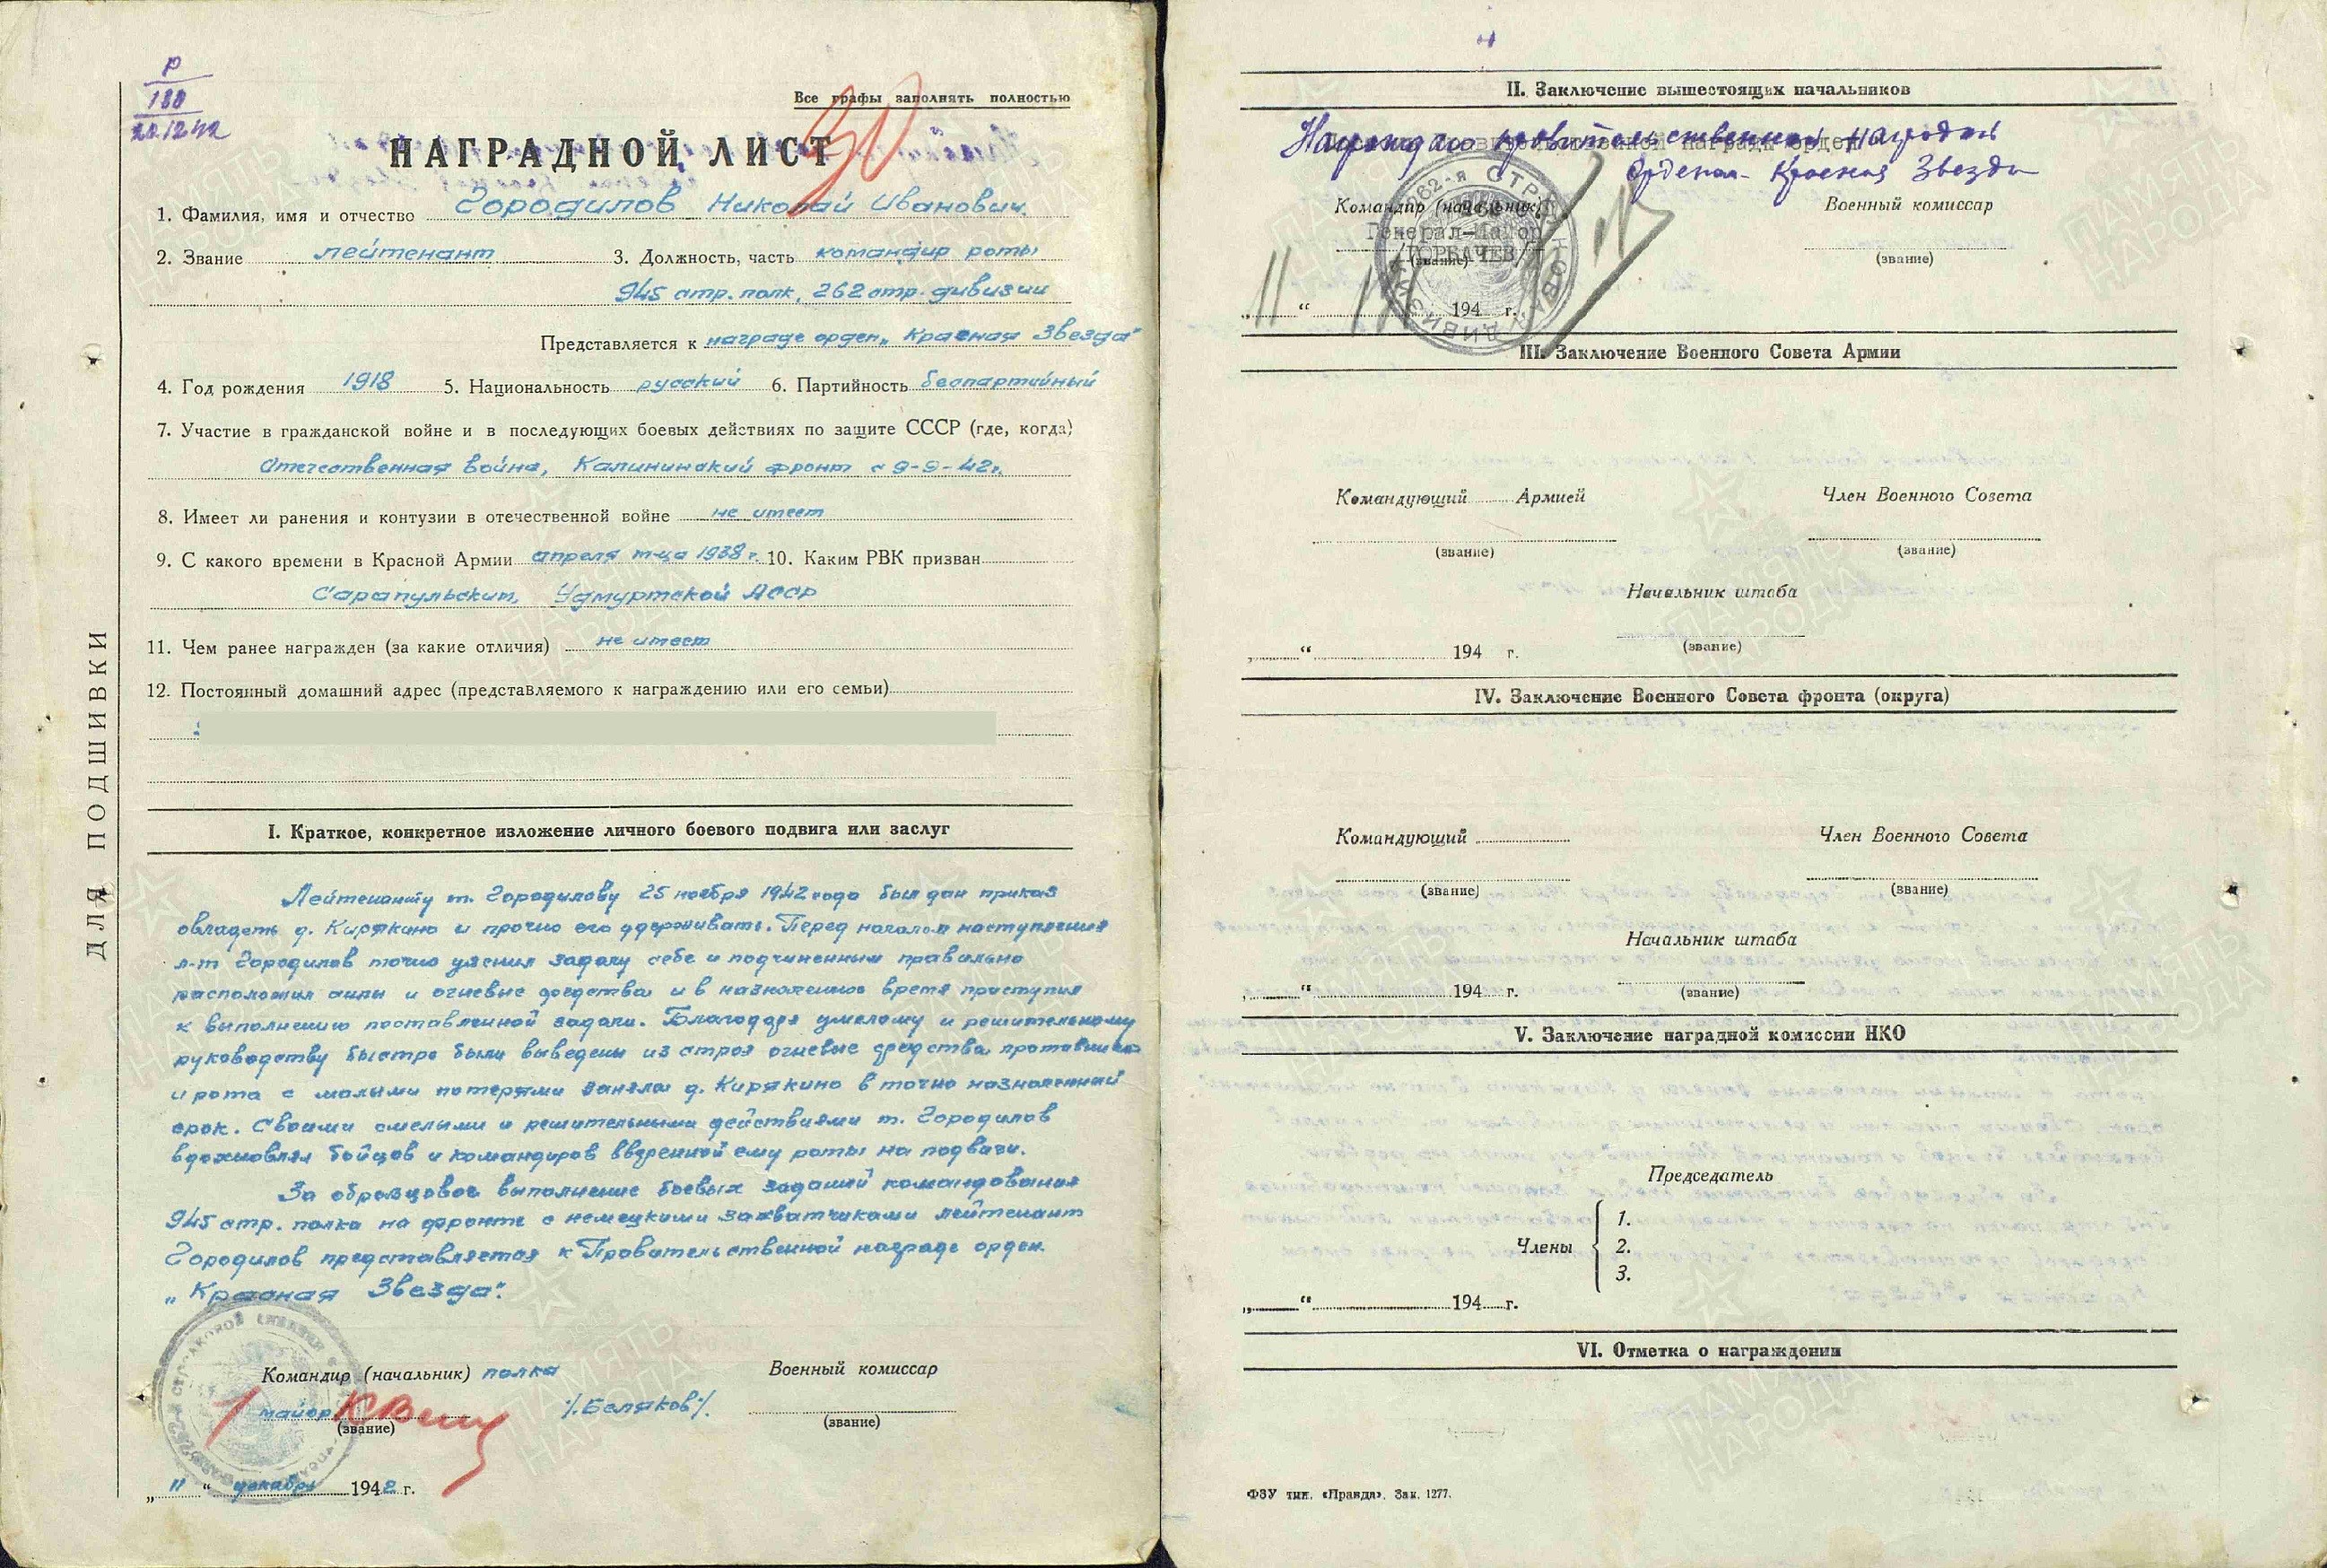 Р
180
20.12.42
Все графы заполнять полностью
НАГРАДНОЙ ЛИСТ
1. Фамилия, имя и отчество Городилов Николай Иванович
2. Звание лейтенант 3. Должность, часть командир роты
945 стр. полк, 262 стр. дивизии
Представляется к награде орден „Красная Звезда"
4. Год рождения 1918 5. Национальность русский 6. Партийность беспартийный
7. Участие в гражданской войне и в последующих боевых действиях по защите СССР (где, когда)
Отечественная война, Калининский фронт с 9-9-42г.
8. Имеет ли ранения и контузии в отечественной войне не имеет
9. С какого времени в Красной Армии апреля м-ца 1938 г. 10. Каким РВК призван
Сарапульским, Удмуртской АССР
11. Чем ранее награжден (за какие отличия) не имеет
12. Постоянный домашний адрес (представляемого к награждению или его семьи)
ДЛЯ ПОДШИВКИ
I. Краткое, конкретное изложение личного боевого подвига или заслуг
Лейтенанту т. Городилову 25 ноября 1942 года был дан приказ
овладеть д. Кирякино и прочно его удерживать. Перед началом наступления
л-т Городилов точно уяснил задачу себе и подчиненным правильно
расположил силы и огневые средства и в назначенное время приступил
к выполнению поставленной задачи. Благодаря умелому и решительному
руководству быстро были выведены из строя огневые средства противника
и рота с малыми потерями заняла д. Кирякино в точно назначенный
срок. Своими смелыми и решительными действиями т. Городилов
вдохновлял бойцов и командиров вверенной ему роты на подвиги.
За образцовое выполнение боевых заданий командования
945 стр. полка на фронте с немецкими захватчиками лейтенант
Городилов представляется к Правительственной награде орден
„Красная Звезда".
Командир (начальник) полка Военный комиссар
майор /.Беляков/.
(звание) (звание)
„11" декабря 1942 г.
II. Заключение вышестоящих начальников
Награждаю правительственной наградой
Орденом Красная Звезда
Командир (начальник) Военный комиссар
Генерал-Майор
/ГОРБАЧЕВ/
(звание) (звание)
„11" 194 г.
III. Заключение Военного Совета Армии
Командующий Армией Член Военного Совета
(звание) (звание)
Начальник штаба
(звание)
„ " 194 г.
IV. Заключение Военного Совета фронта (округа)
Командующий Член Военного Совета
(звание) (звание)
Начальник штаба
(звание)
„ " 194 г.
V. Заключение наградной комиссии НКО
Председатель
Члены
1.
2.
3.
„ " 194 г.
VI. Отметка о награждении
ФЗУ тип. «Правда». Зак. 1277.
ПАМЯТЬ НАРОДА